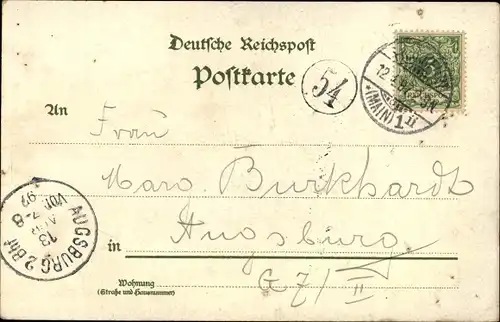 Deutsche Reichspost
Postkarte
54
12.
*(MAIN)1
An
Frau
Marx. Burkhardt
in Augsburg
G 71/II
AUGSBURG 2 Bhf
13
APR
VOR.7-8
97
Wohnung
(Straße und Hausnummer)